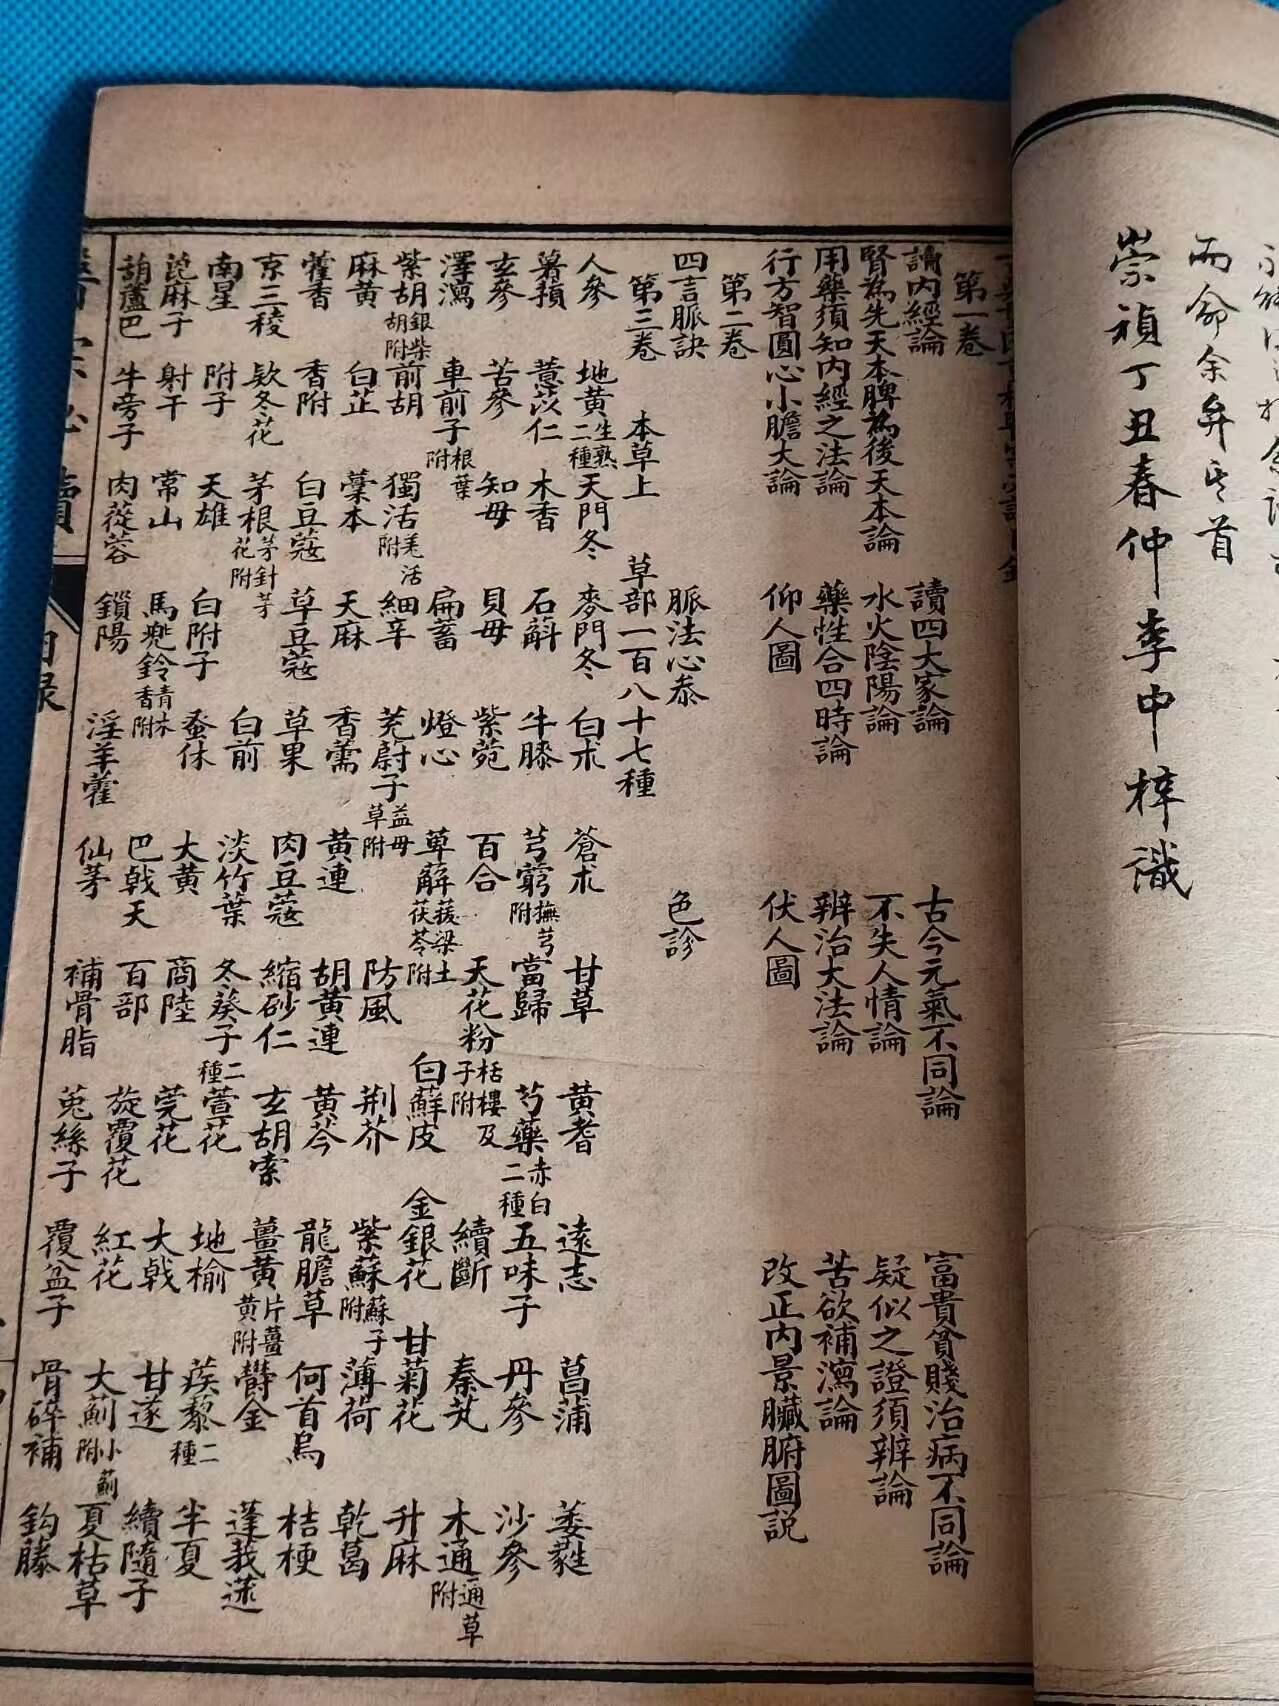 而命余弁其首
崇禎丁丑春仲李中梓識
第一卷
讀內經論 讀四大家論 古今元氣不同論 富貴貧賤治病不同論
腎為先天本脾為後天本論 水火陰陽論 不失人情論 疑似之證須辨論
用藥須知內經之法論 藥性合四時論 辨治大法論 苦欲補瀉論
行方智圓心小膽大論 仰人圖 伏人圖 改正內景臟腑圖説
第二卷
四言脈訣 脈法心叅 色診
第三卷 本草上 草部一百八十七種
人參 地黃生熟二種 天門冬 麥門冬 白朮 蒼朮 甘草 黃耆 遠志 菖蒲 萎蕤
薯蕷 薏苡仁 木香 石斛 牛膝 芎藭撫芎附 當歸 芍藥赤白二種 五味子 丹參 沙參
玄參 苦參 知母 貝母 紫菀 百合 天花粉栝樓及子附 續斷 秦艽 木通通草附
澤瀉 車前子根葉附 獨活羌活附 扁蓄 燈心 萆薢菝土茯苓附 白蘚皮 金銀花 甘菊花 升麻
紫胡銀柴胡附 前胡 藁本 細辛 茺蔚子益母草附 黃連 防風 荊芥 紫蘇蘇子附 薄荷 乾葛
麻黃 白芷 白豆蔻 天麻 香薷 胡黃連 黃芩 龍膽草 何首烏 桔梗
藿香 香附 草豆蔻 草果 肉豆蔻 縮砂仁 玄胡索 薑黃片薑黃附 鬱金 蓬莪蒁
京三稜 欵冬花 茅根茅針茅花附 白前 淡竹葉 冬葵子 萱花 地榆 蒺藜二種 半夏
南星 附子 天雄 白附子 蚤休 大黃 商陸 芫花 大戟 甘遂 續隨子
蓖麻子 射干 常山 馬兜鈴青木香附 巴戟天 百部 旋覆花 紅花 大薊小薊附 夏枯草
葫蘆巴 牛旁子 肉蓯蓉 鎖陽 淫羊藿 仙茅 補骨脂 菟絲子 覆盆子 骨碎補 鈎藤
目錄